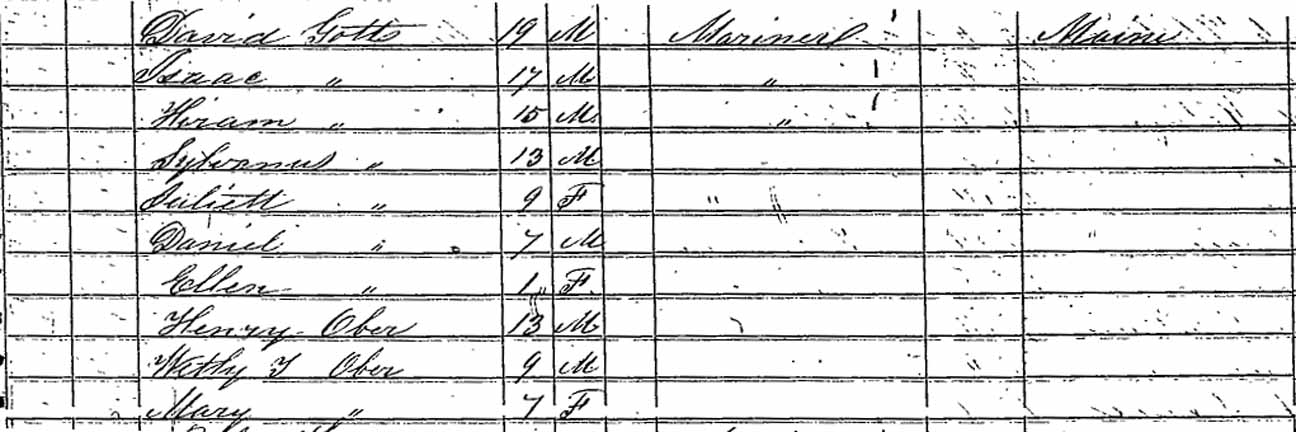 David Gott 19 M Mariner Maine
Isaac " 17 M "
Hiram " 15 M "
Sylvanus " 13 M
Juliett " 9 F
Daniel " 7 M
Ellen " 1 F
Henry Ober 13 M
Ober 9 M
Mary " 7 F